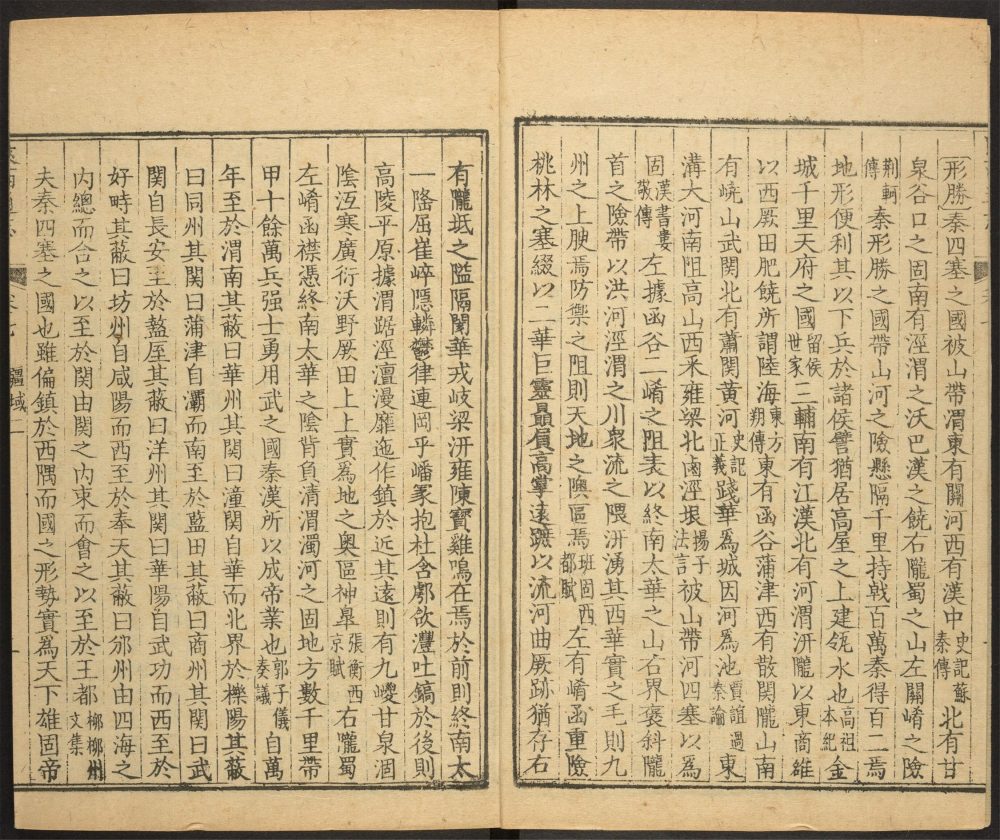 形勝秦四塞之國被山帶渭東有關河西有漢中史記蘇秦傳北有甘
泉谷口之固南有涇渭之沃巴漢之饒右隴蜀之山左關崤之險
荆軻傳秦形勝之國帶山河之險懸隔千里持戟百萬秦得百二焉
地形便利其以下兵於諸侯譬猶居高屋之上建瓴水也高祖本紀金
城千里天府之國留侯世家三輔南有江漢北有河渭汧隴以東商雒
以西厥田肥饒所謂陸海東方朔傳東有函谷蒲津西有散関隴山南
有嶢山武関北有蕭関黄河史記正義踐華為城因河為池賈誼過秦論東
溝大河南阻高山西采雍梁北鹵涇垠揚子法言被山帶河四塞以為
固漢書婁敬傳左據函谷二崤之阻表以終南太華之山右界褒斜隴
首之險帶以洪河涇渭之川衆流之隈汧湧其西華實之毛則九
州之上腴焉防禦之阻則天地之隩區焉班固西都賦左有崤函重險
桃林之塞綴以二華巨靈贔屓高掌遠蹠以流河曲厥跡猶存右
有隴坻之隘隔閡華戎岐梁汧雍陳寳雞鳴在焉於前則終南太
一隆屈崔崪隱轔鬱律連岡乎嶓冢抱杜含鄠欱灃吐鎬於後則
高陵平原據渭踞涇澶漫靡迤作鎮於近其遠則有九嵕甘泉涸
陰沍寒廣衍沃野厥田上上實為地之奥區神臯張衡西京賦右隴蜀
左崤函襟憑終南太華之陰背負清渭濁河之固地方數千里帶
甲十餘萬兵强士勇用武之國秦漢所以成帝業也郭子儀奏議自萬
年至於渭南其蔽曰華州其関曰潼関自華而北界於櫟陽其蔽
曰同州其関曰蒲津自灞而南至於藍田其蔽曰商州其関曰武
関自長安至於盩厔其蔽曰洋州其関曰華陽自武功而西至於
好畤其蔽曰坊州自咸陽而西至於奉天其蔽曰邠州由四海之
内總而合之以至於関由関之内束而會之以至於王都柳柳州文集
夫秦四塞之國也雖偏鎮於西隅而國之形勢實為天下雄固帝
卷七
疆域二